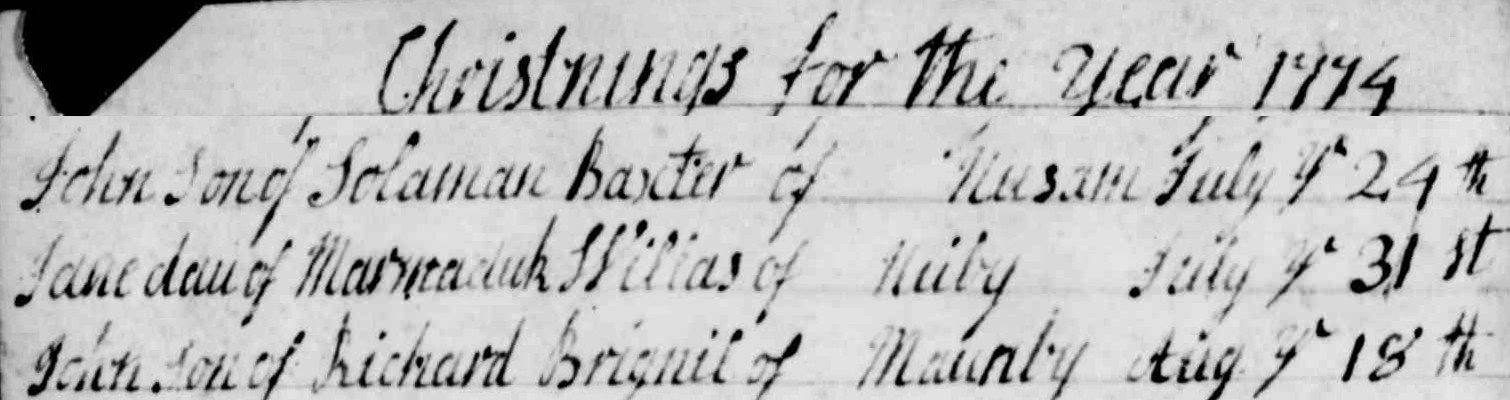 Christnings for the Year 1774
John Son of Solaman Baxter of Nusam July ye 24th
Jane dau of Marmaduk Willas of Niiby July ye 31st
John Son of Richard Brignil of Maunby Aug ye 18th